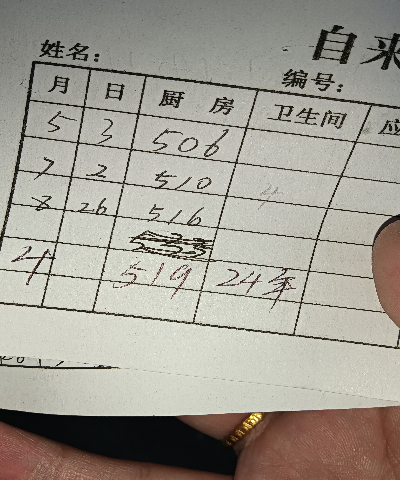 自来
姓名:
编号:
月 日 厨房 卫生间 应
5 3 506
7 2 510 4
8 26 516
4 519 24年